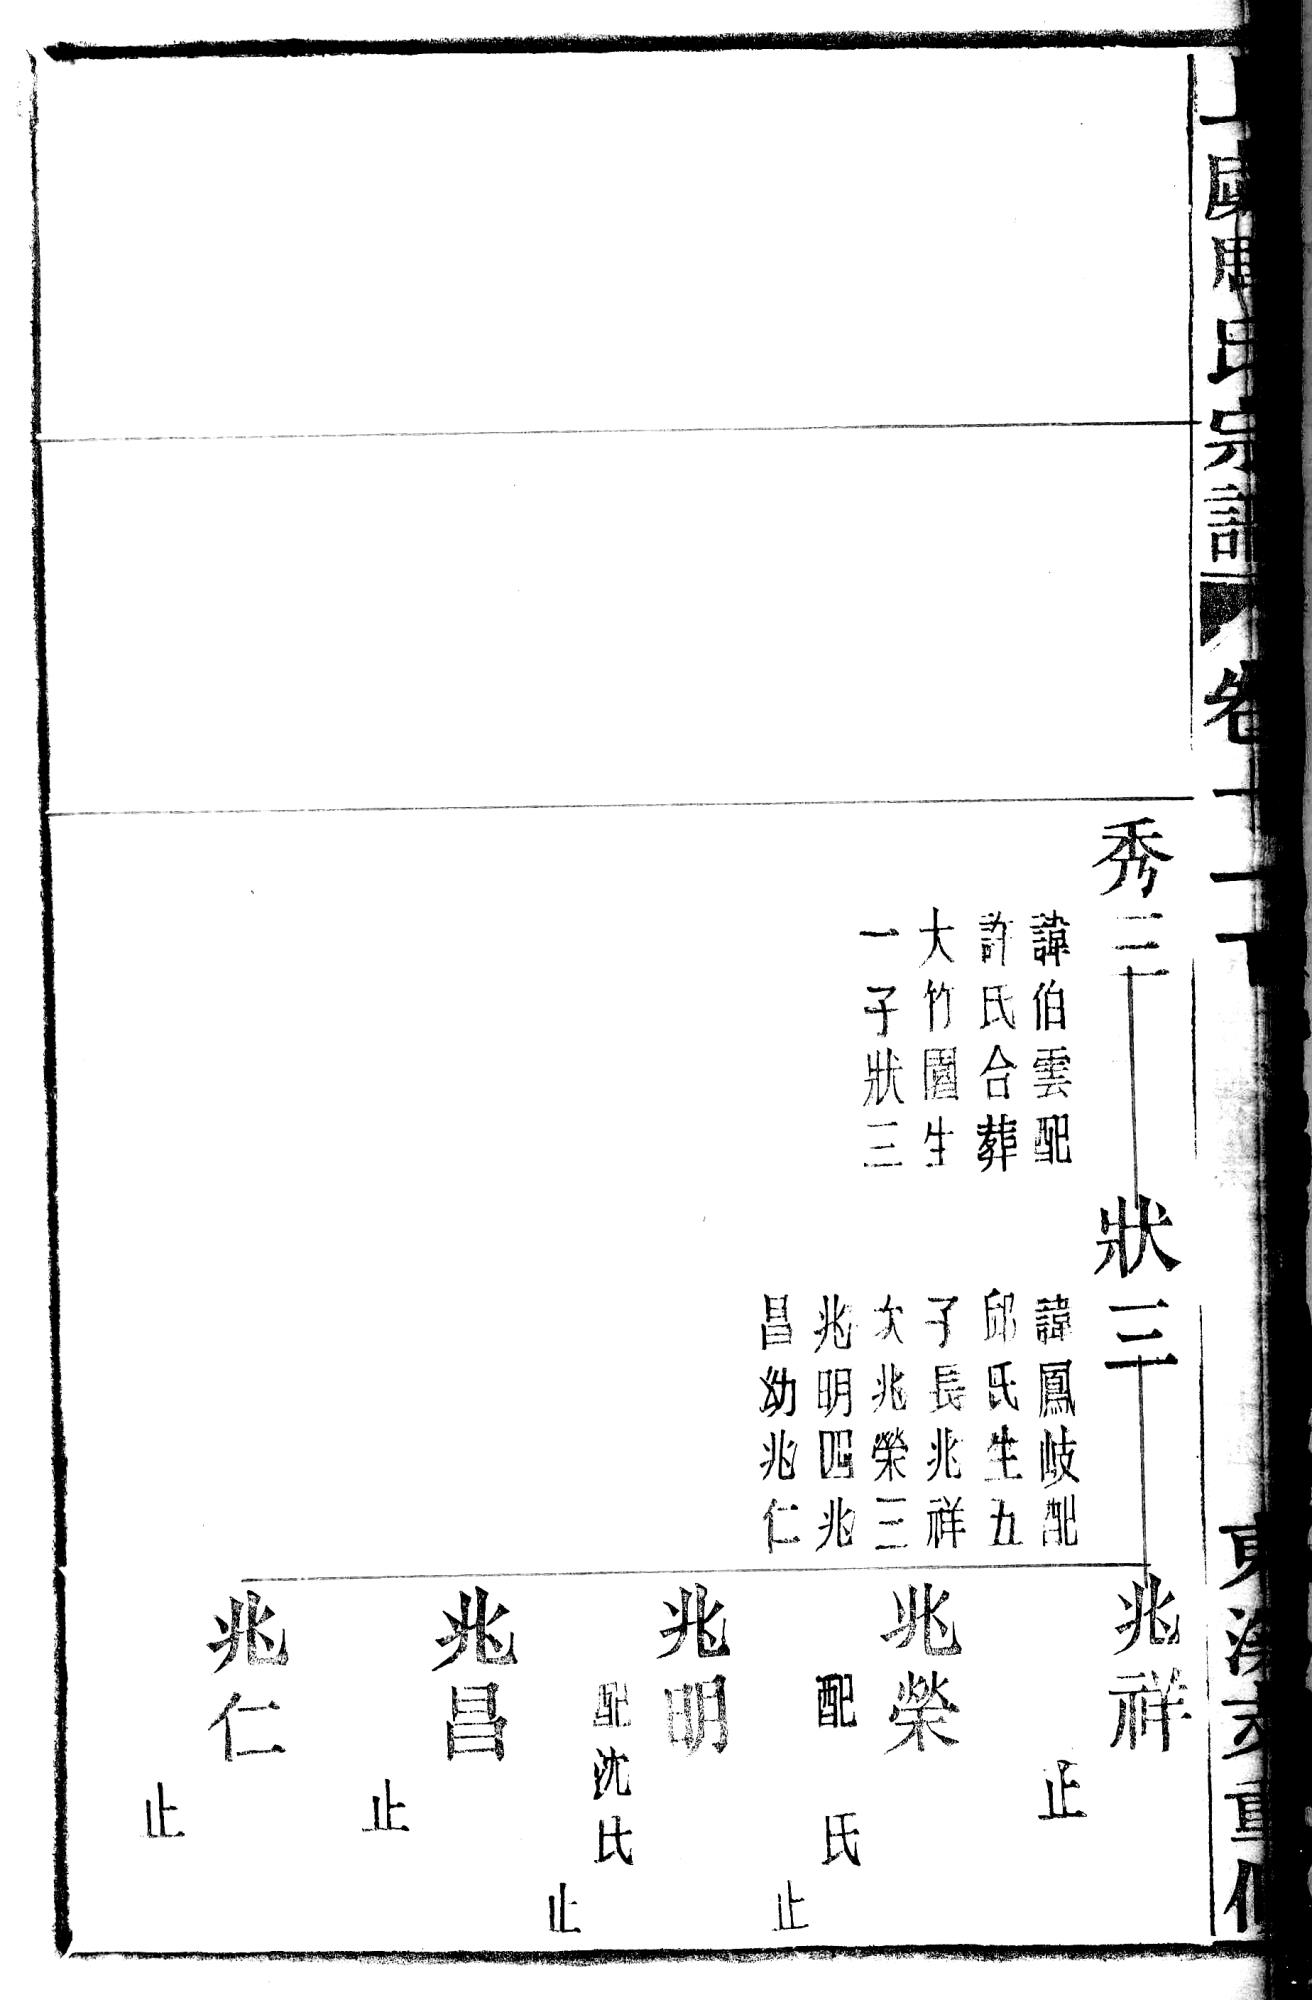 氏宗譜
卷十
秀三
諱伯雲配
許氏合葬
大竹園生
一子狀三
狀三
諱鳳岐配
邱氏生五
子長兆祥
次兆榮三
兆明四兆
昌幼兆仁
兆祥
止
兆榮
配 氏
止
兆明
配沈氏
止
兆昌
止
兆仁
止